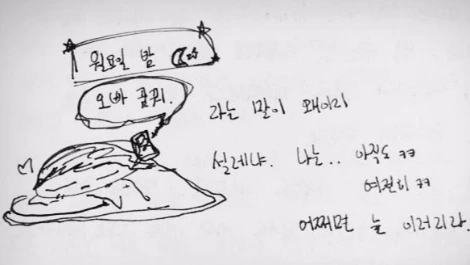 월요일 밤
오빠 꿈꿔.
라는 말이 왜이리
설레냐. 나는.. 아직도 ㅋㅋ
여전히 ㅋㅋ
어쩌면 늘 이러리라.